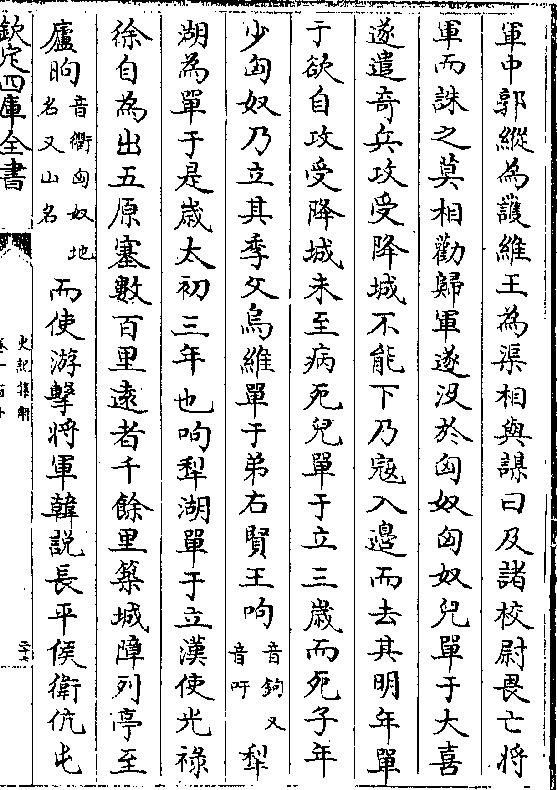 軍中郭縱為護維王為渠相與謀曰及諸校尉畏亡將
軍而誅之莫相勸歸軍遂沒於匈奴匈奴兒單于大喜
遂遣竒兵攻受降城不能下乃宼入邉而去其明年單
于欲自攻受降城未至病死兒單于立三歲而死子年
少匈奴乃立其季父烏維單于弟右賢王呴音鉤又音吁犁
湖為單于是歲太初三年也呴犁湖單于立漢使光祿
徐自為出五原塞數百里逺者千餘里築城障列亭至
廬朐音衢匈奴地名又山名而使游擊將軍韓說長平侯衛伉屯
欽定四庫全書